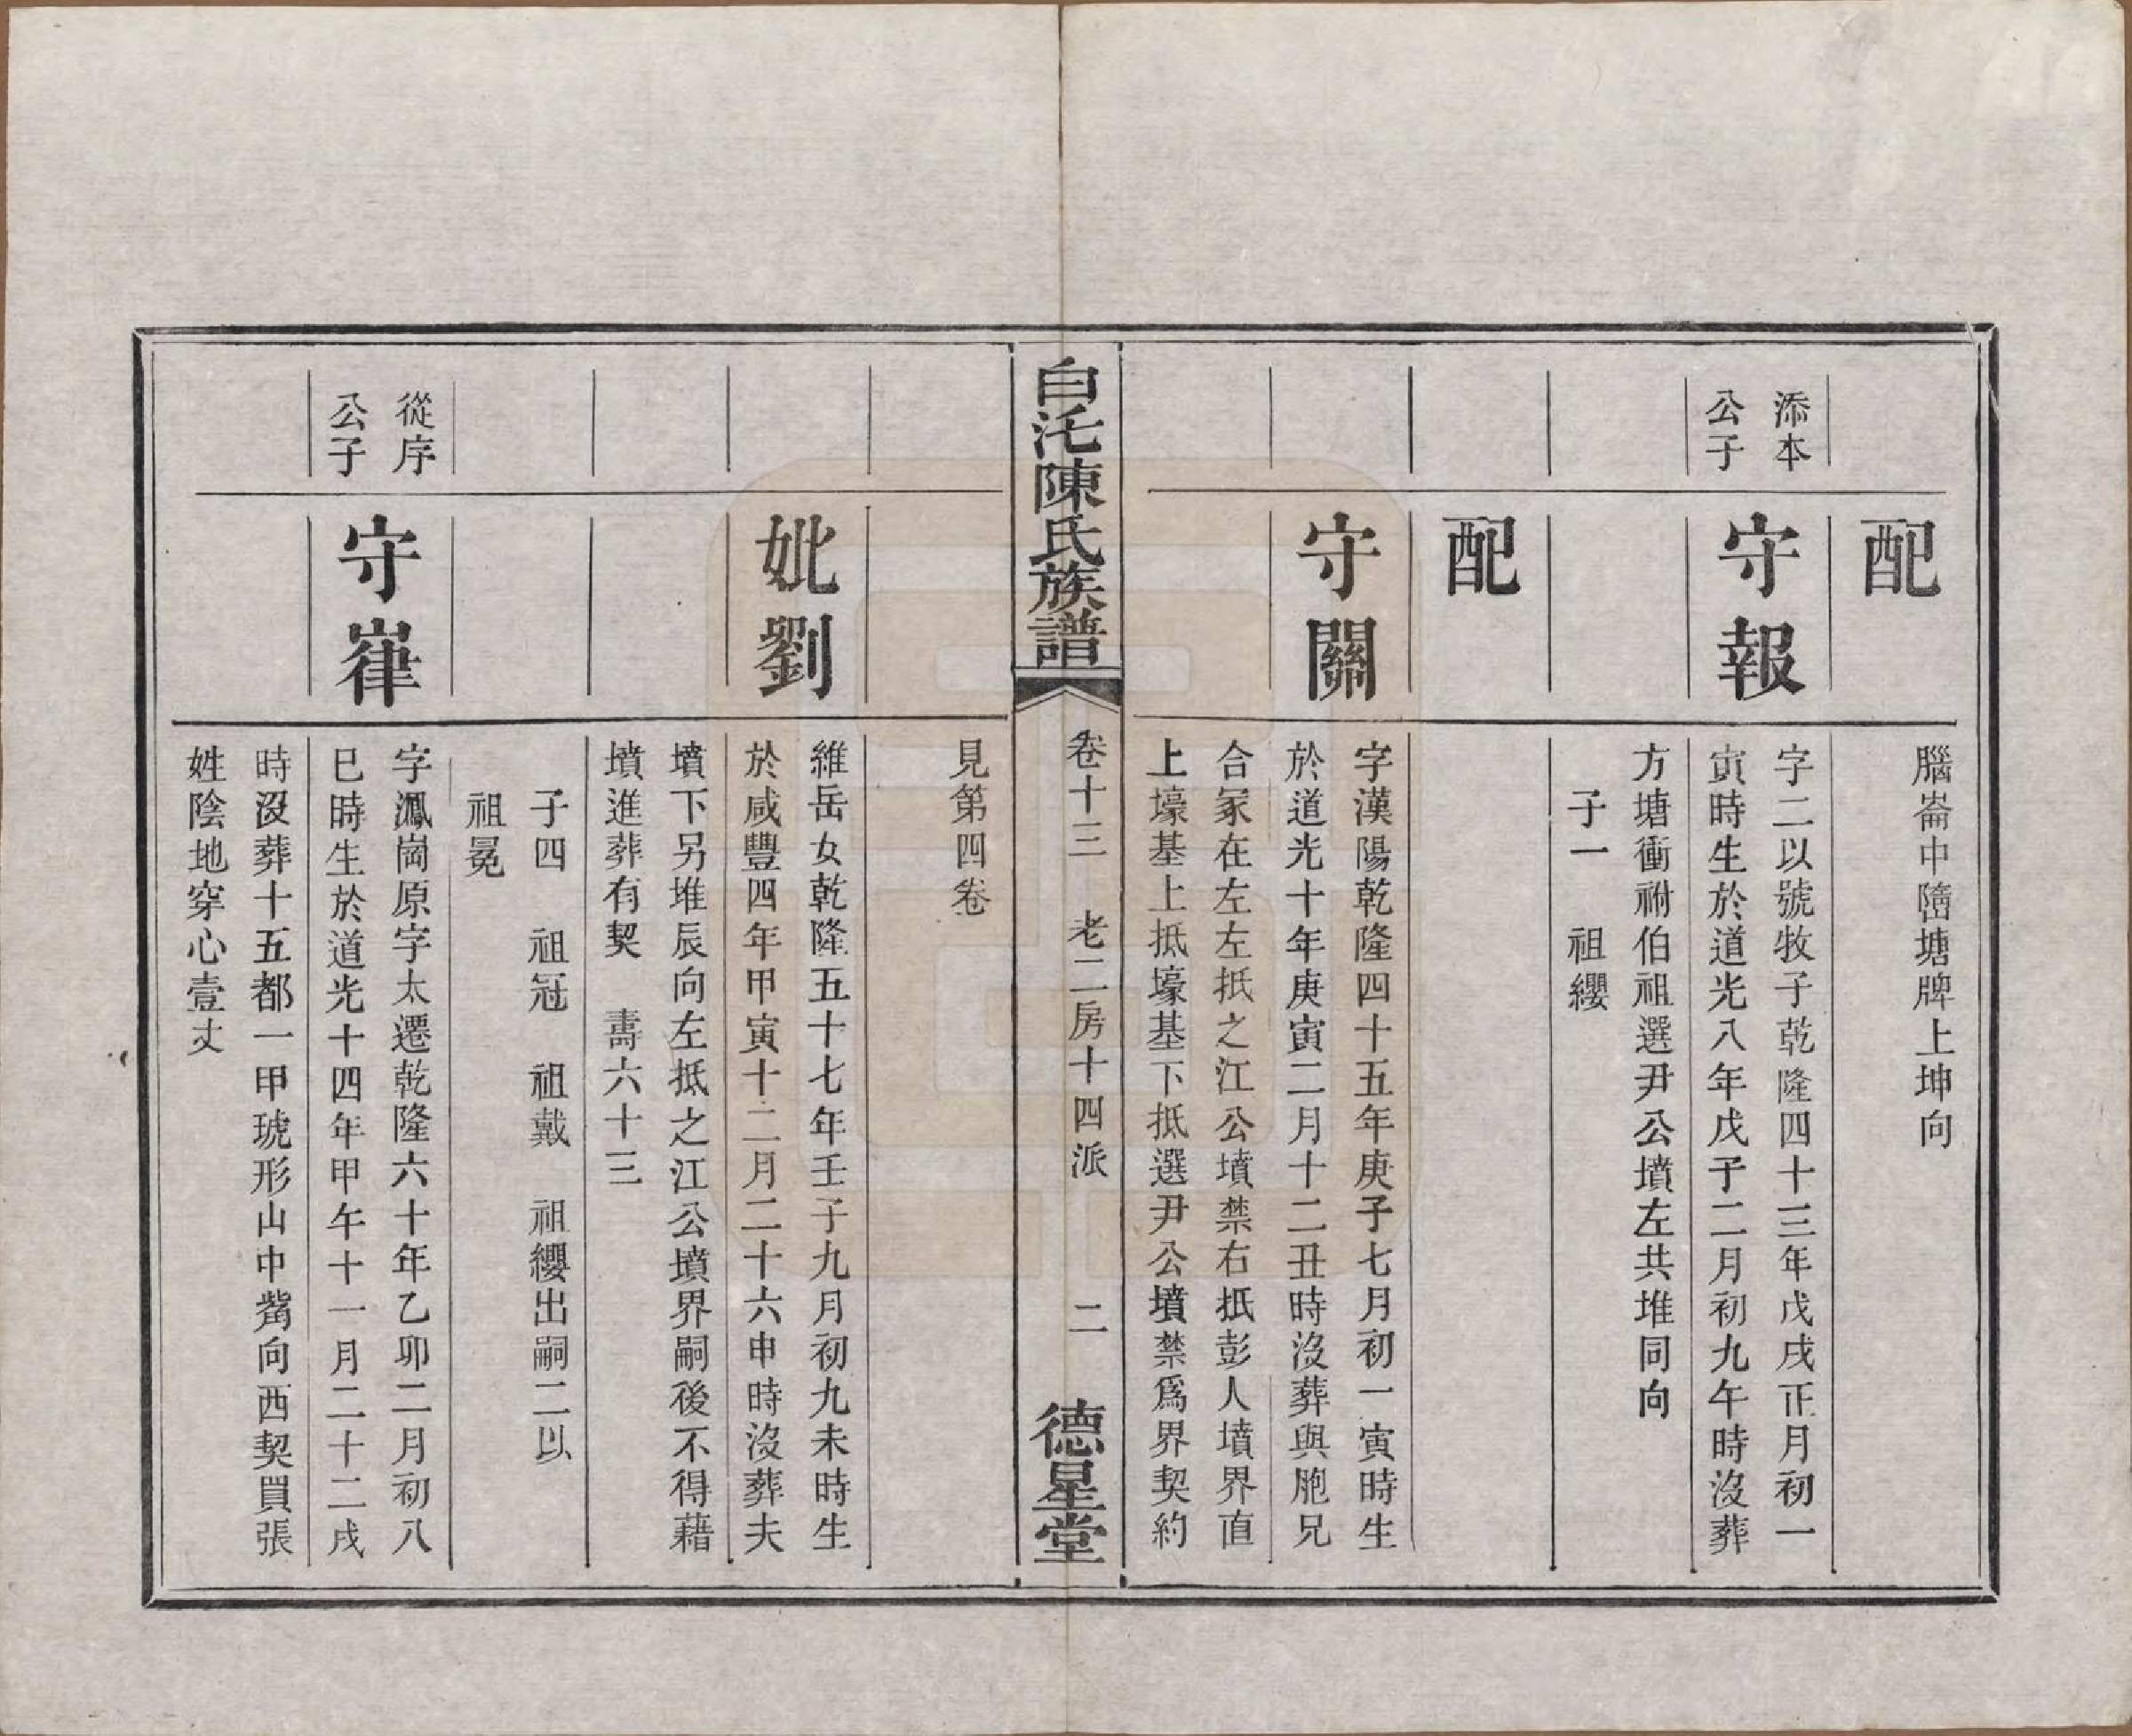 配
腦崙中隯塘牌上坤向
添本
公子
守報
字二以號牧子乾隆四十三年戊戌正月初一
寅時生於道光八年戊子二月初九午時沒葬
方塘衝祔伯祖選尹公墳左共堆同向
子一　祖纓
配
守關
字漢陽乾隆四十五年庚子七月初一寅時生
於道光十年庚寅二月十二丑時沒葬與胞兄
合冢在左左抵之江公墳禁右抵彭人墳界直
上壕基上抵壕基下抵選尹公墳禁爲界契約
白沱陳氏族譜
卷十三　老二房十四派
二
德星堂
見第四卷
妣劉
維岳女乾隆五十七年壬子九月初九未時生
於咸豐四年甲寅十二月二十六申時沒葬夫
墳下另堆辰向左抵之江公墳界嗣後不得藉
墳進葬有契　壽六十三
子四　祖冠　祖戴　祖纓出嗣二以
祖冕
從序
公子
守嵂
字鳳崗原字太遷乾隆六十年乙卯二月初八
巳時生於道光十四年甲午十一月二十二戌
時沒葬十五都一甲琥形山中觜向西契買張
姓陰地穿心壹丈